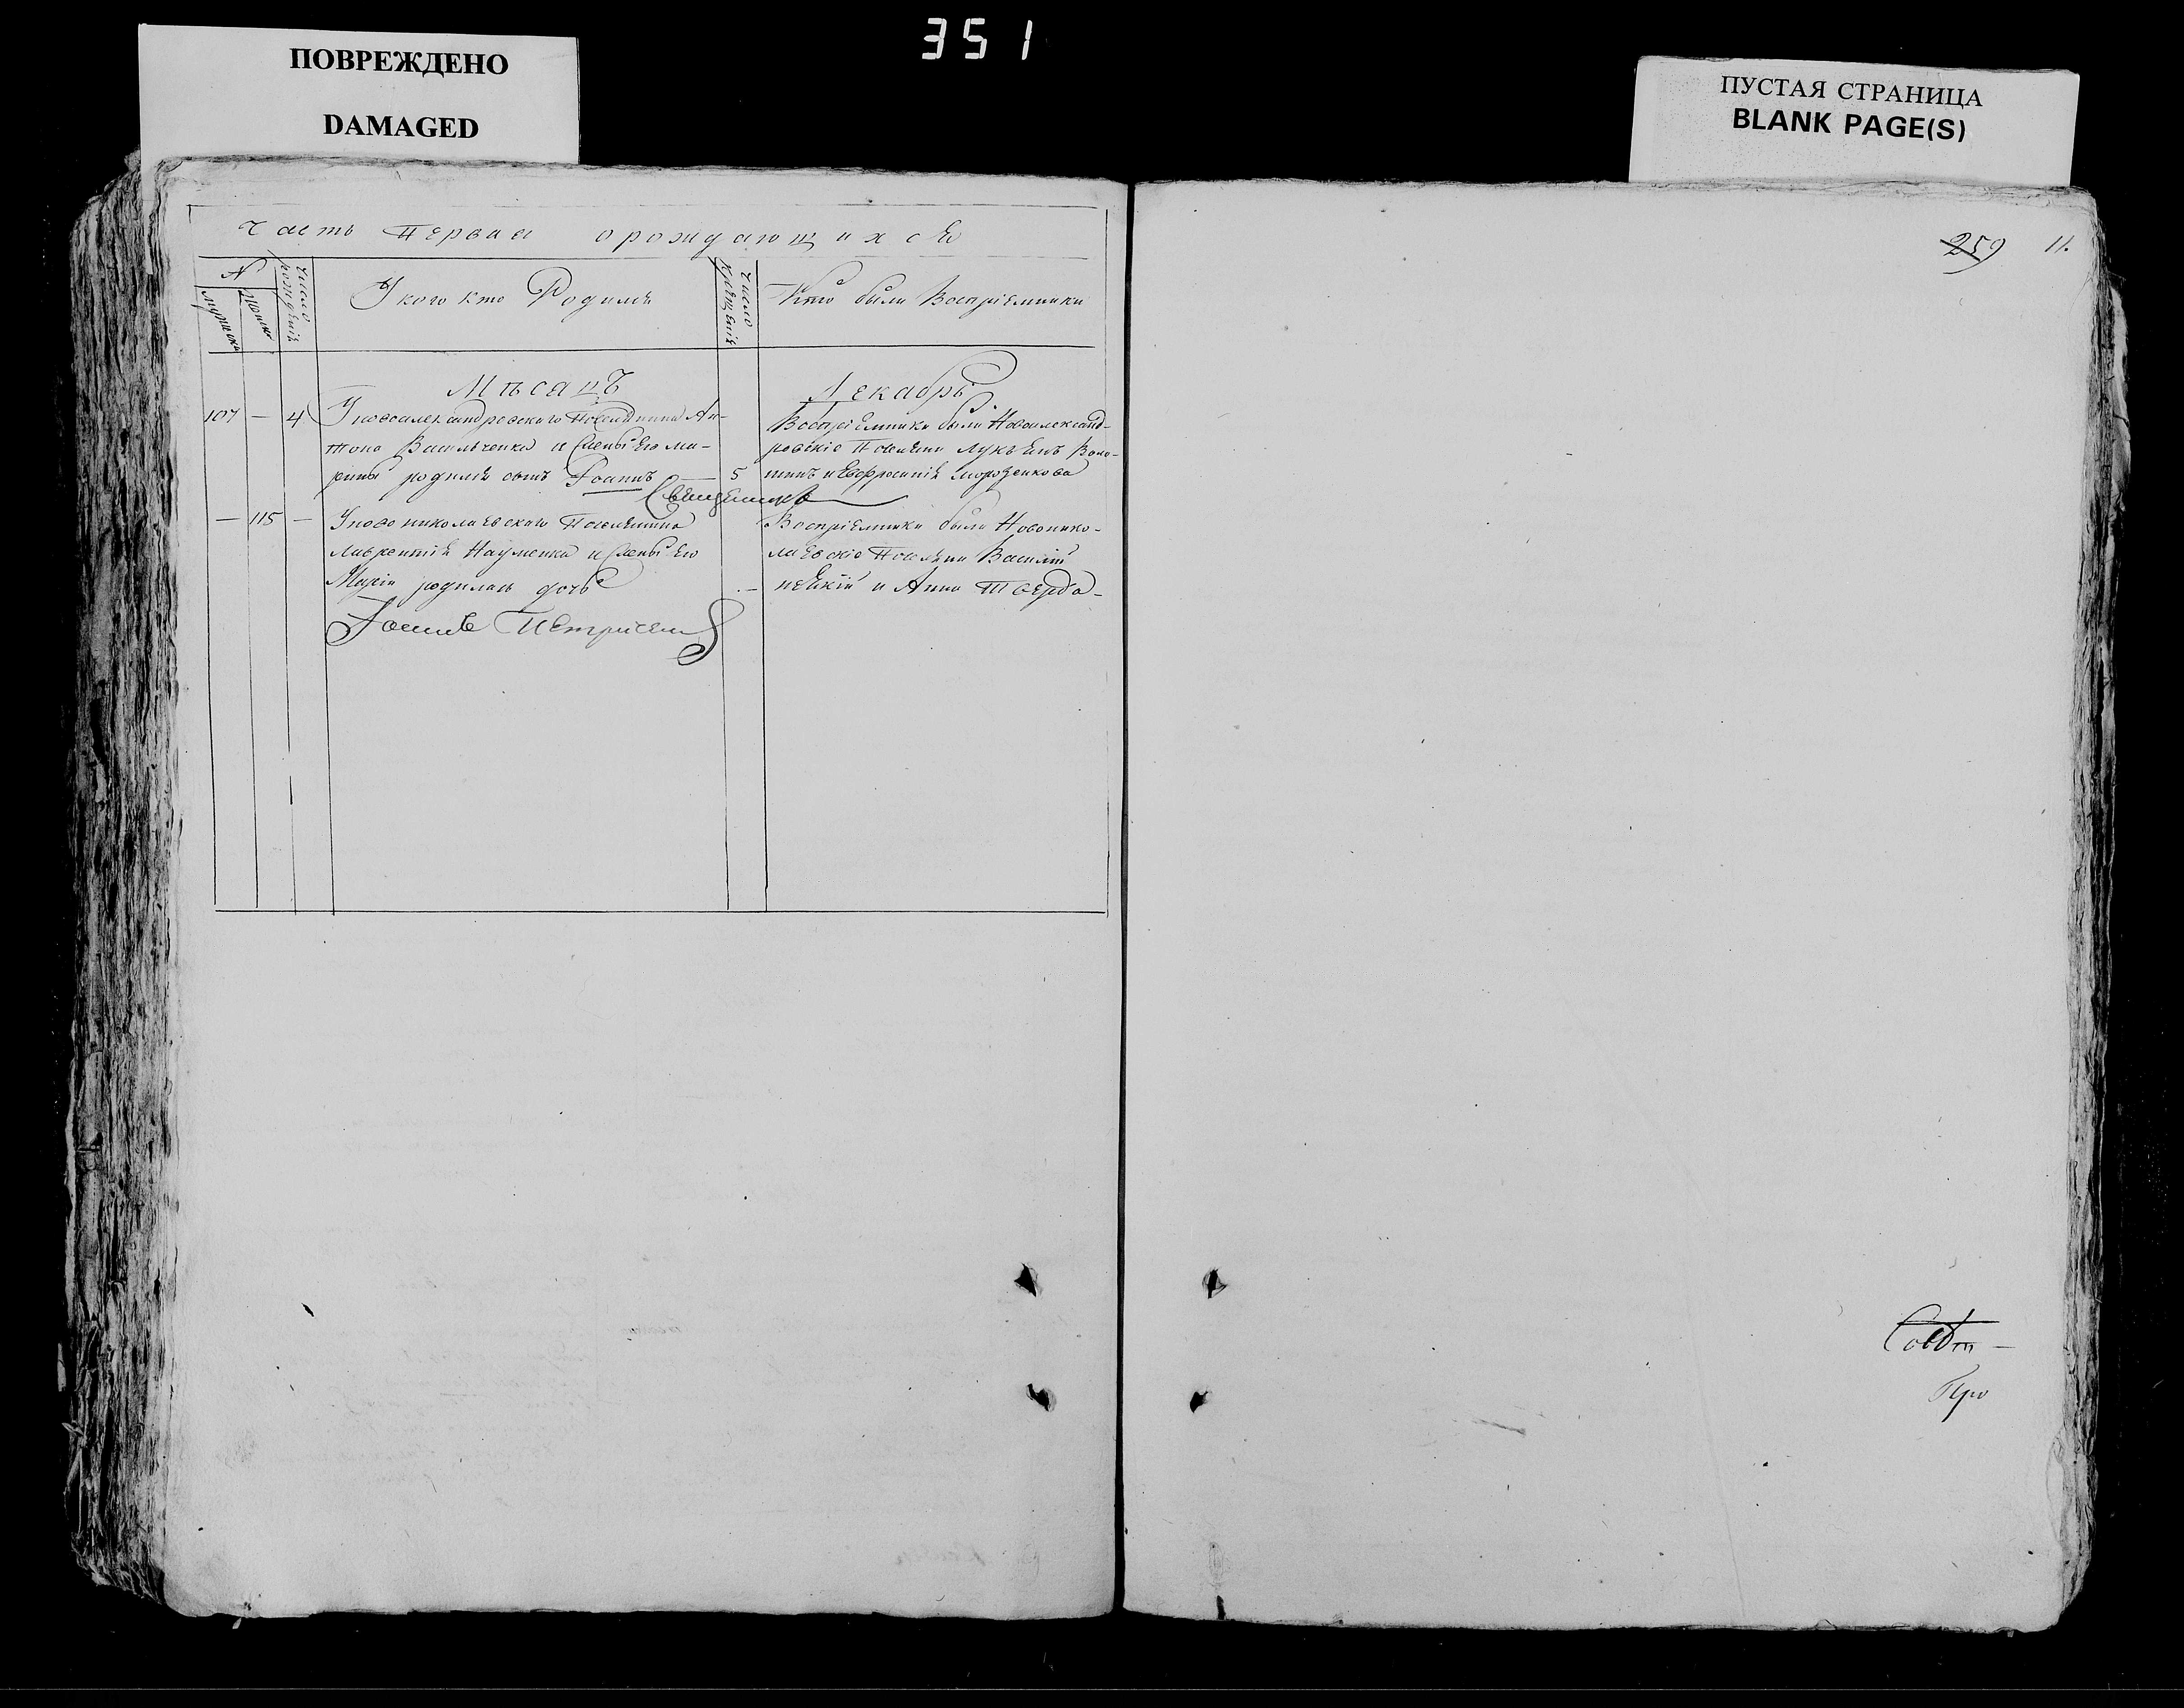 351
ПОВРЕЖДЕНО
DAMAGED
ПУСТАЯ СТРАНИЦА
BLANK PAGE(S)
Часть Первая о рождающихся
№
мужеска
женска
Число рождения
У кого кто Родился
Число крещения
Кто были Восприемники
Мѣсацъ Декабрь
107 — 4 У новоалександровскаго Поселянина Ан-
тона Васильченка и Жены его Ма-
рины родился сынъ Іоаннъ — 5
Восприемники были Новоалександ-
ровские Поселяне Лукьянъ Воло-
шинъ и Евфросиния Морозенкова
Священникъ
— 115 — У новониколаевскаго Поселянина
Лаврентия Науменка и Жены его
Марии родилась дочь —
Восприемники были Новонико-
лаевские Поселяне Василий
и Анна
Іоаннъ
259 11.
Про